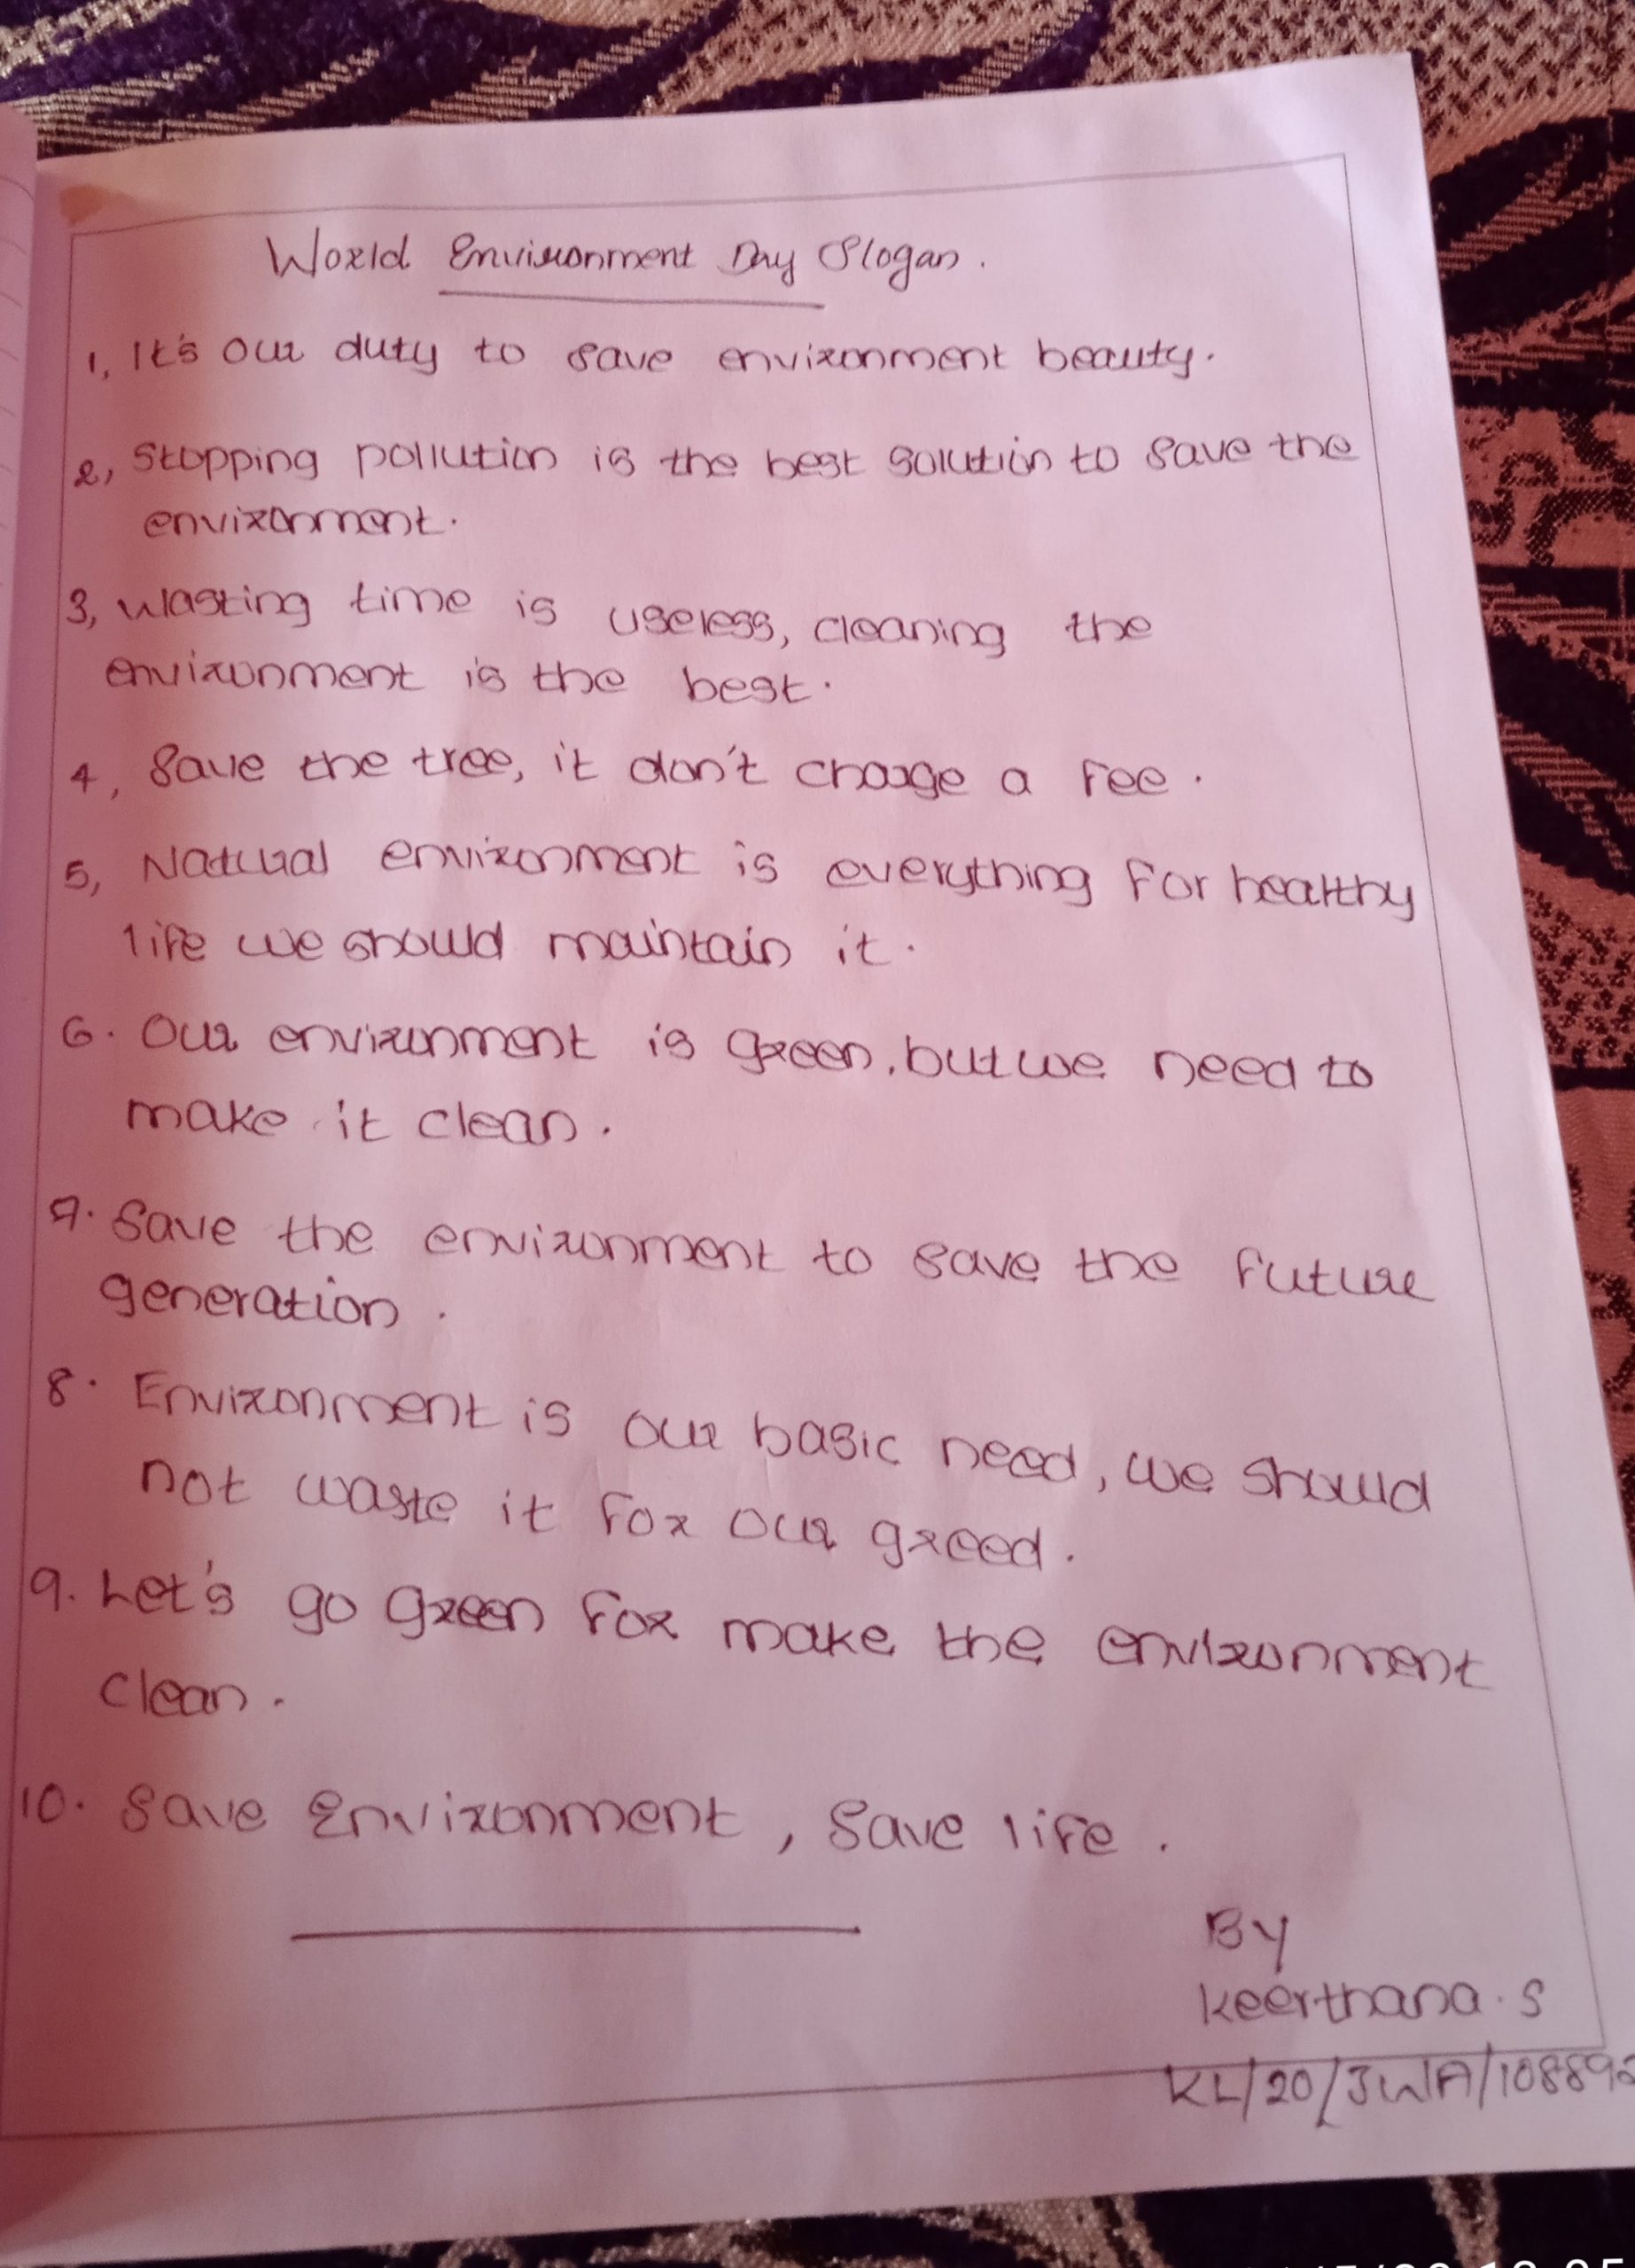 World Environment Day Slogan.
1, It's our duty to save environment beauty.
2, Stopping pollution is the best solution to save the
environment.
3, Wasting time is useless, cleaning the
environment is the best.
4, Save the tree, it don't charge a fee.
5, Natural environment is everything for healthy
life we should maintain it.
6. Our environment is green, but we need to
make it clean.
7. Save the environment to save the future
generation.
8. Environment is our basic need, we should
not waste it for our greed.
9. Let's go green for make the environment
clean.
10. Save Environment, Save life.
By
Keerthana. S
KL/20/JWA/108892